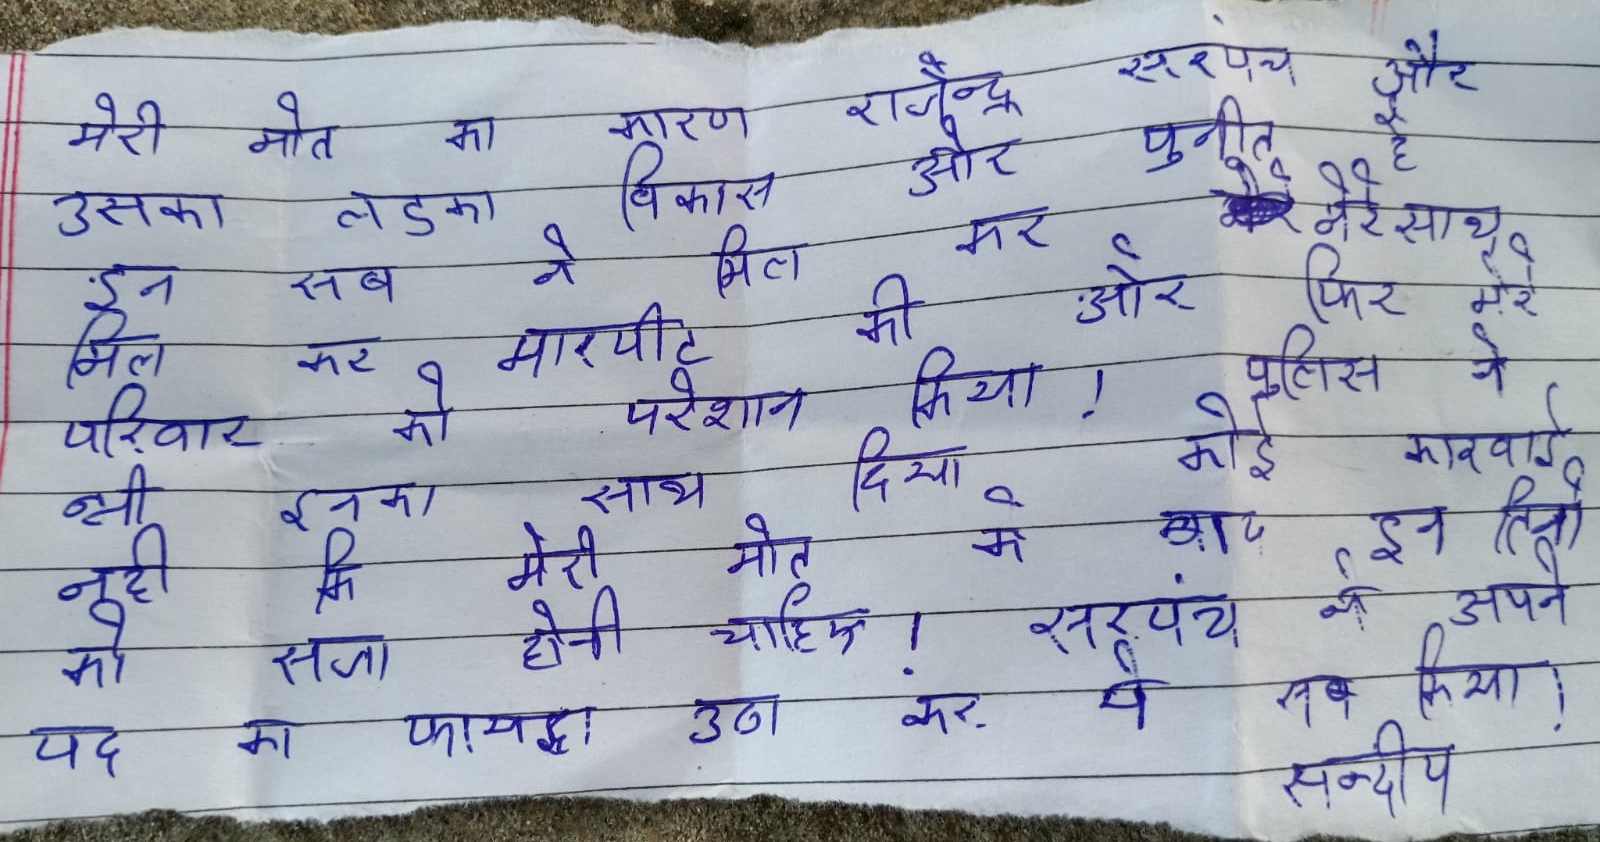 मेरी मोत का कारण राजेन्द्र सरपंच और
उसका लडका विकास और पुनीत है
इन सब ने मिल कर मेरे साथ
मिल कर मारपीट की और फिर मेरे
परिवार को परेशान किया! पुलिस ने
भी इनका साथ दिया कोई कारवाई
नही कि मेरी मोत के बाद इन तिनो
को सजा होनी चाहिए! सरपंच ने अपने
पद का फायदा उठा कर ये सब किया!
सन्दीप